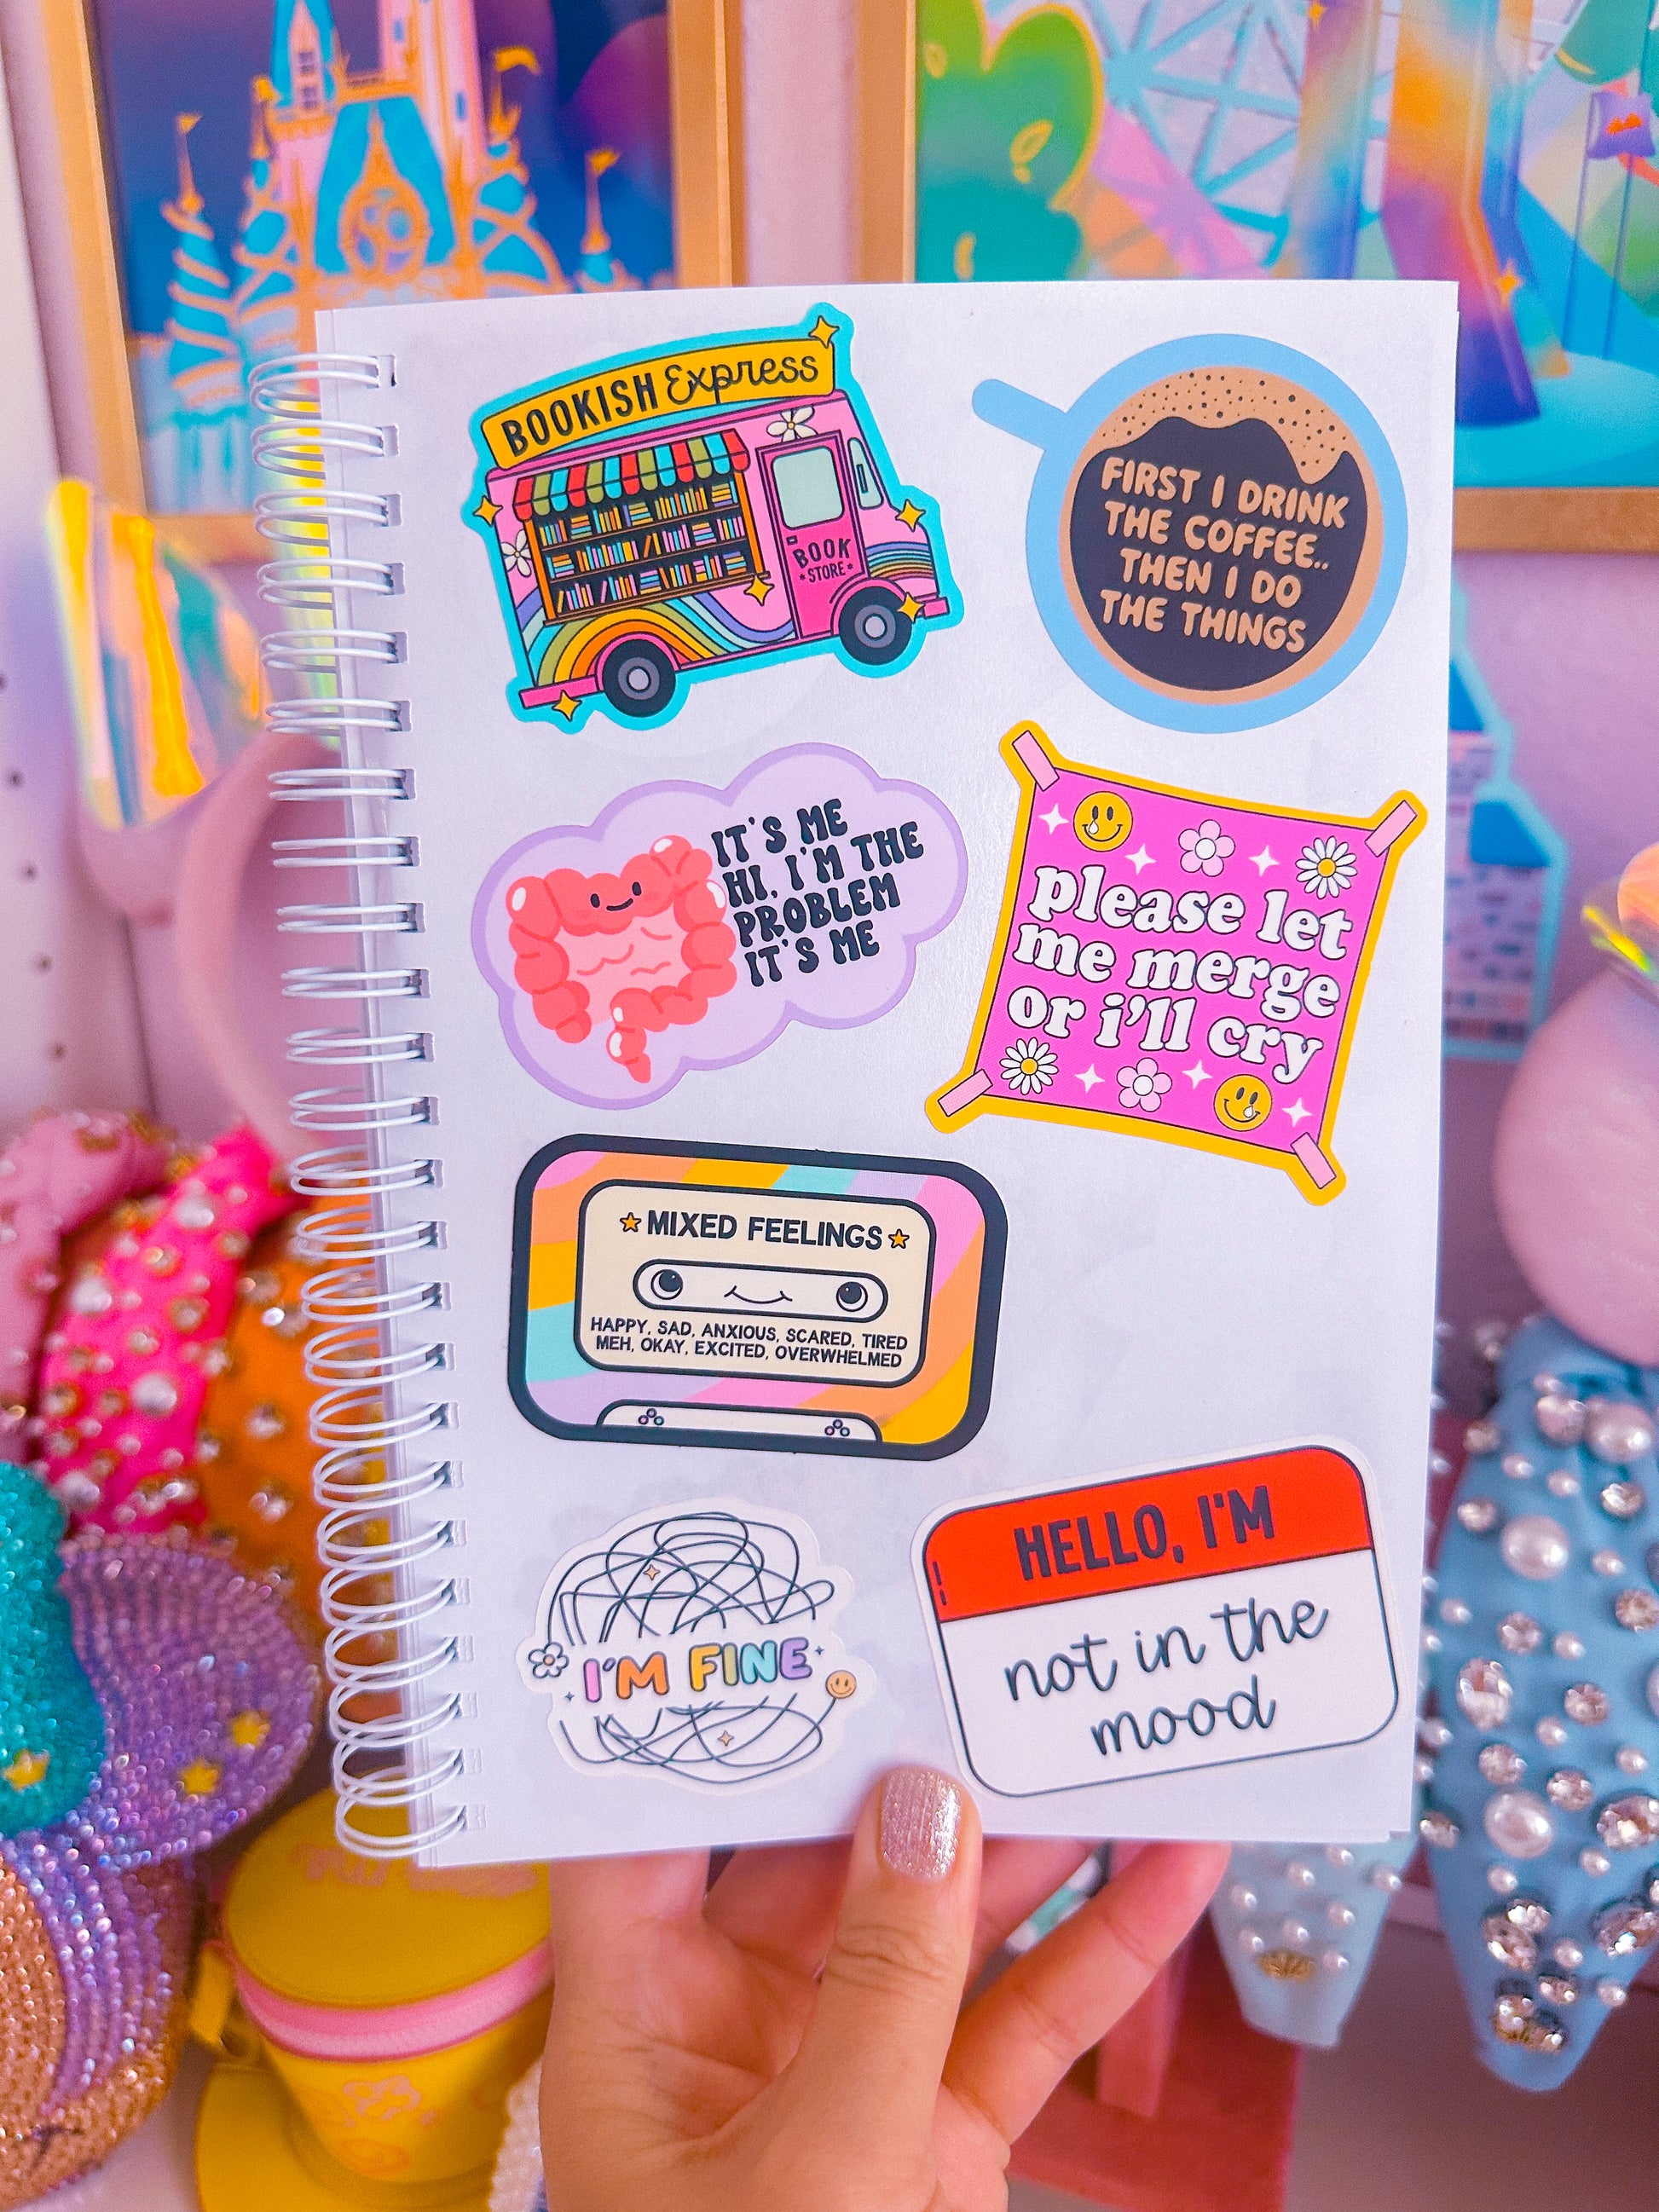 BOOKISH Express
BOOK
STORE
FIRST I DRINK
THE COFFEE..
THEN I DO
THE THINGS
IT'S ME
HI, I'M THE
PROBLEM
IT'S ME
please let
me merge
or i'll cry
MIXED FEELINGS
HAPPY, SAD, ANXIOUS, SCARED, TIRED
MEH, OKAY, EXCITED, OVERWHELMED
I'M FINE
HELLO, I'M
not in the
mood